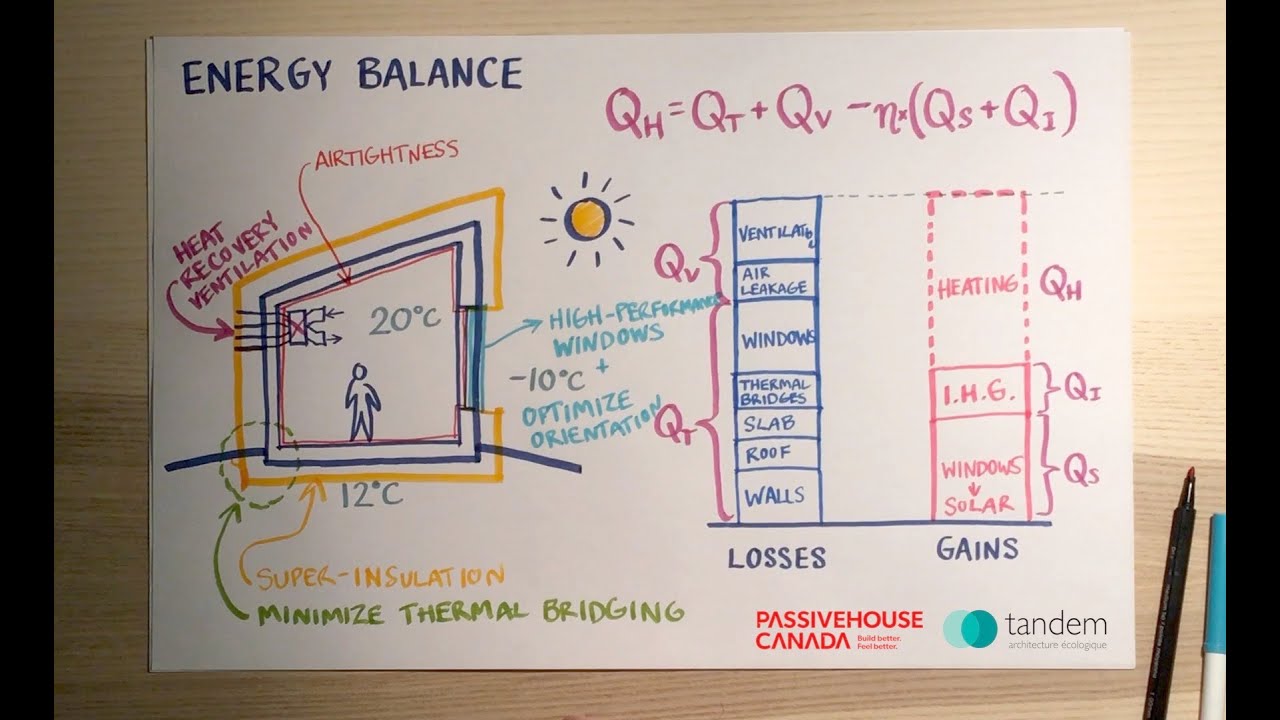 ENERGY BALANCE
Q_H = Q_T + Q_V - η×(Q_S + Q_I)
AIRTIGHTNESS
HEAT
RECOVERY
VENTILATION
20°C
HIGH-PERFORMANCE
WINDOWS
+
-10°C
OPTIMIZE
ORIENTATION
12°C
SUPER-INSULATION
MINIMIZE THERMAL BRIDGING
Q_V
Q_T
VENTILATION
AIR
LEAKAGE
WINDOWS
THERMAL
BRIDGES
SLAB
ROOF
WALLS
LOSSES
HEATING
I.H.G.
WINDOWS
SOLAR
GAINS
Q_H
Q_I
Q_S
PASSIVEHOUSE
CANADA
Build better.
Feel better.
tandem
architecture écologique